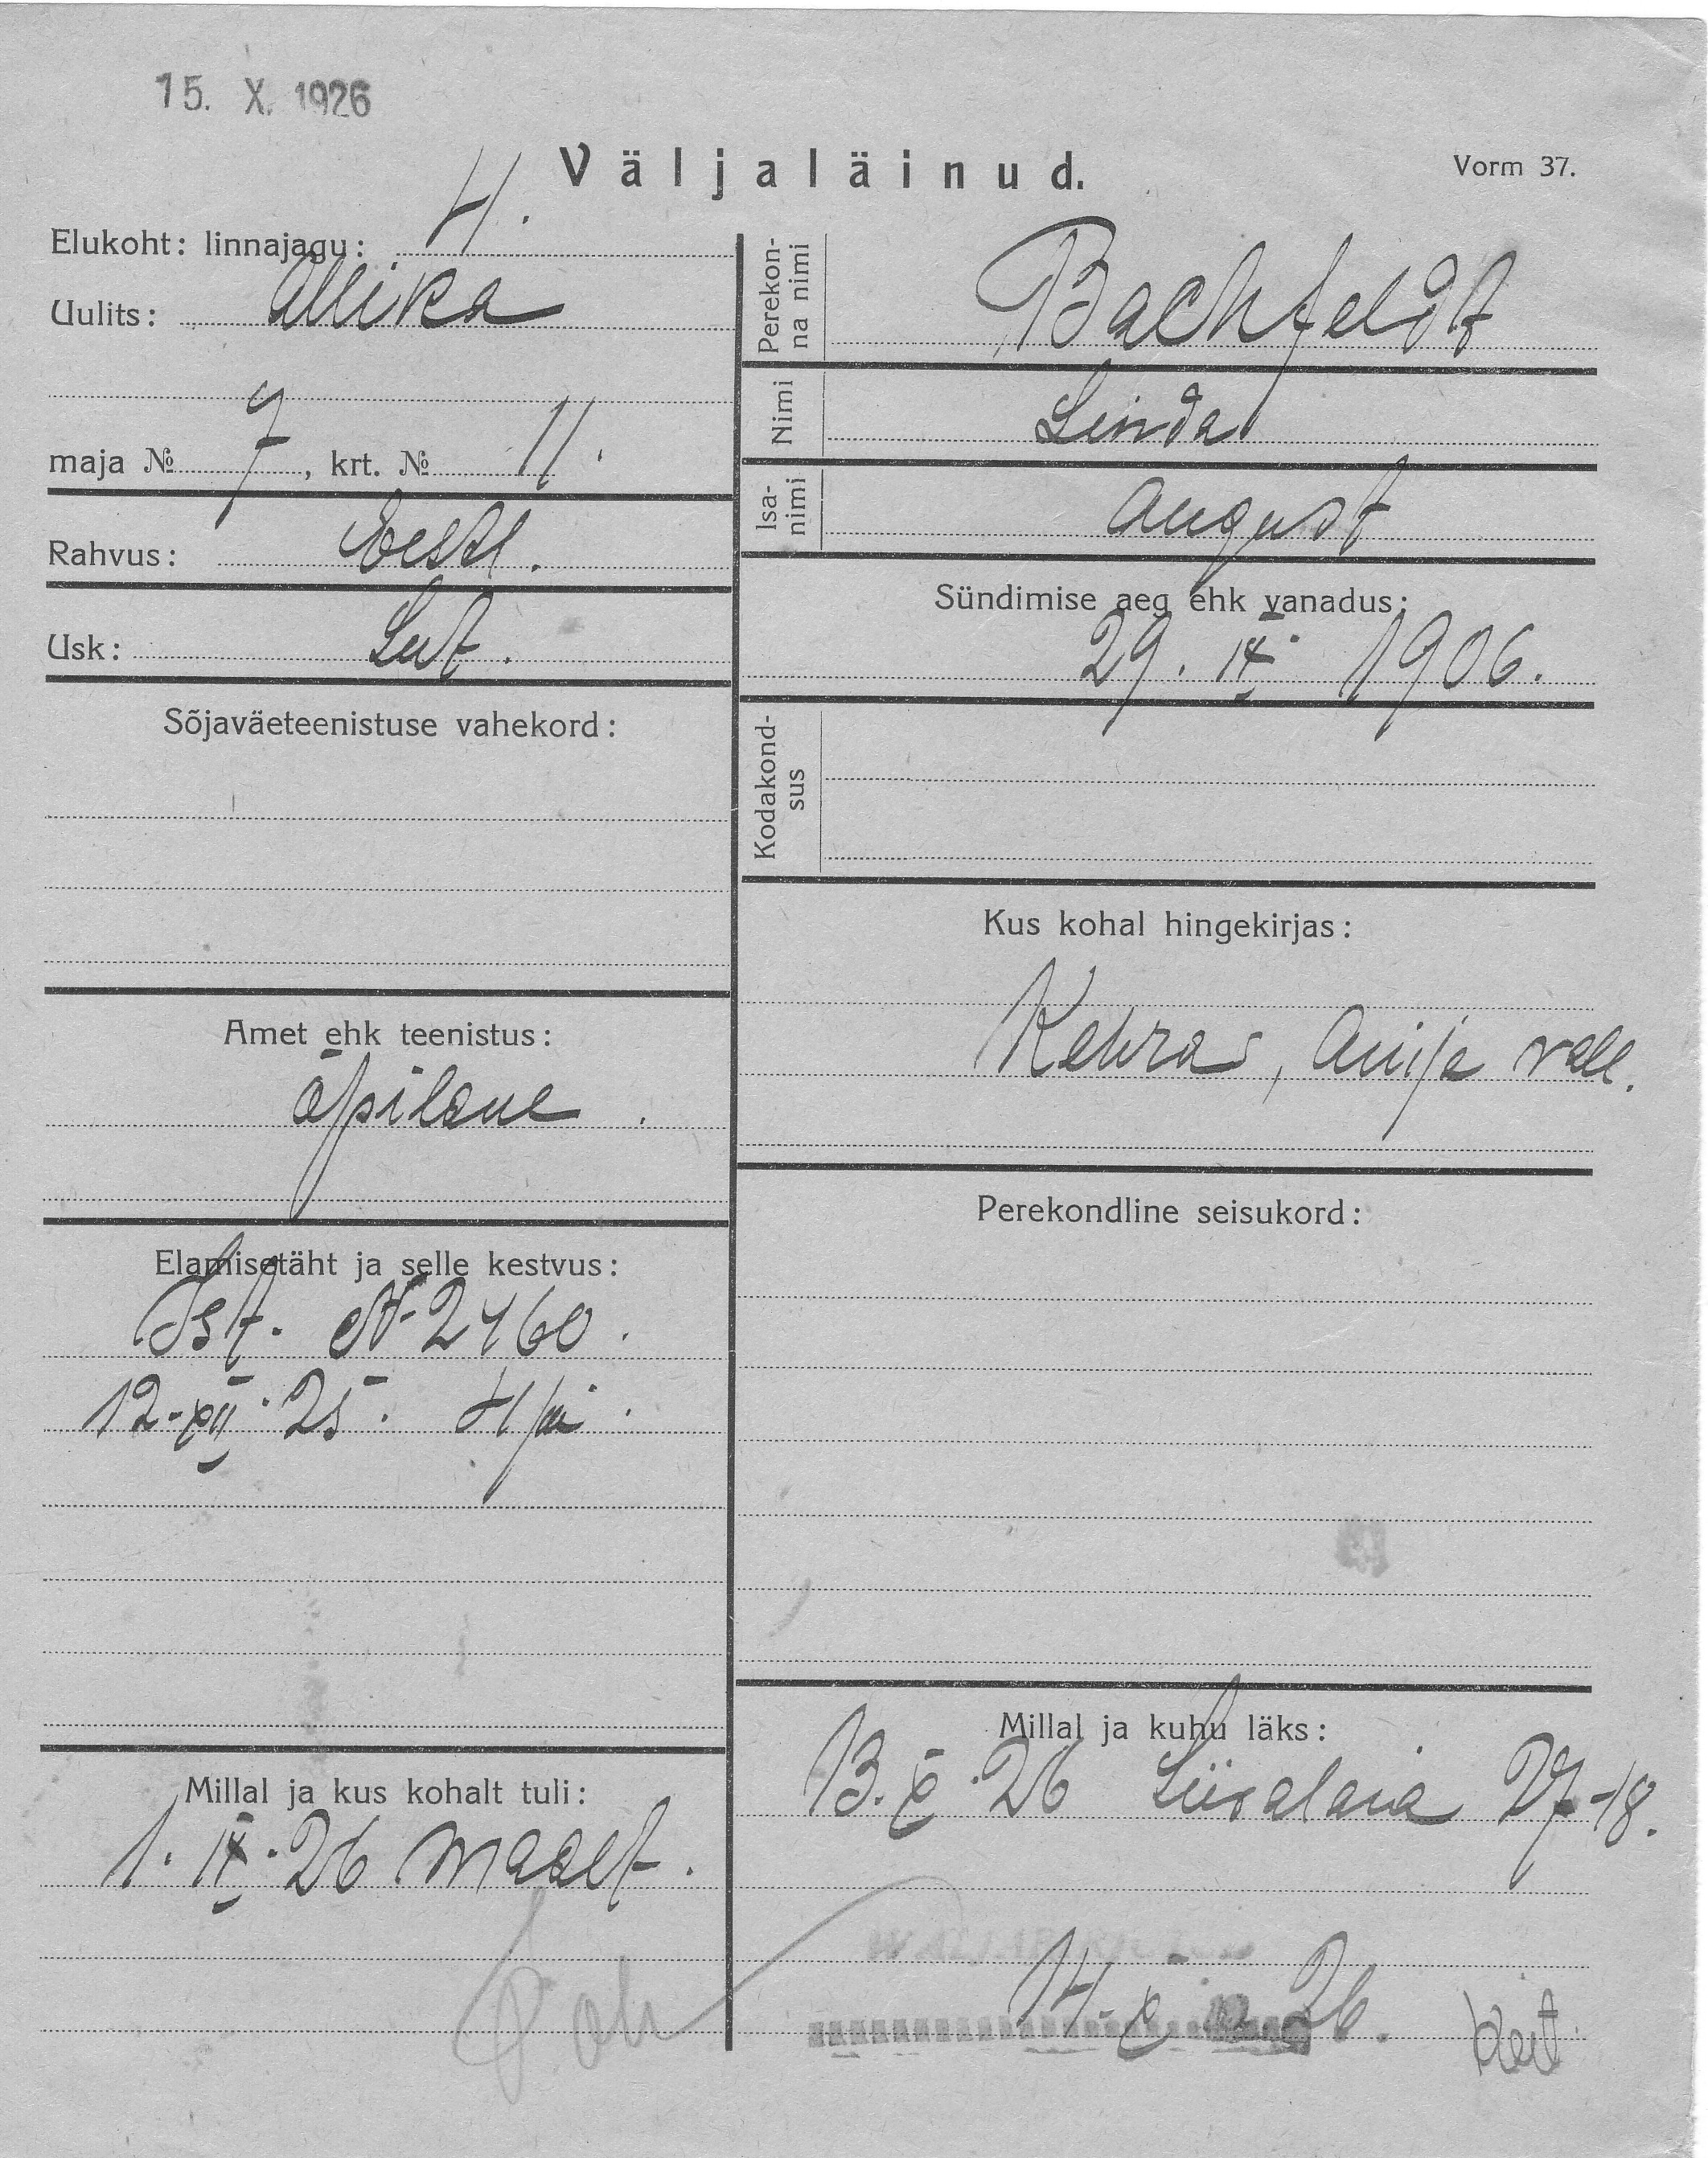 15. X. 1926
Väljaläinud.
Vorm 37.
Elukoht: linnajagu: 4.
Uulits: Allika
maja № 7, krt. № 11.
Rahvus: Eestl.
Usk: Lut.
Sõjaväeteenistuse vahekord:
Amet ehk teenistus:
õpilane.
Elamisetäht ja selle kestvus:
Ist. № 2460.
12-XII-25. 4 jsk.
Millal ja kus kohalt tuli:
1. IX. 26 maalt.
Perekonna nimi
Bachfeldt
Nimi
Linda
Isanimi
August
Sündimise aeg ehk vanadus:
29. IX. 1906.
Kodakondsus
Kus kohal hingekirjas:
Kehras, Anija vall.
Perekondline seisukord:
Millal ja kuhu läks:
13. X. 26 Liivalaia 27-18.
14-X 26.